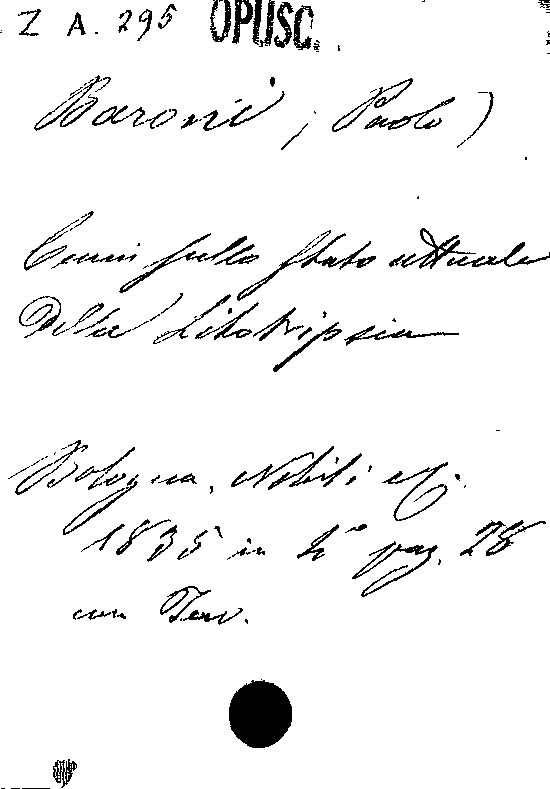 Z A. 295 OPUSC.
Baroni, Paolo)
Cenni sullo stato attuale
della Litotripsia
Bologna, Nobili e C.
1835 in 4° pag. 28
con Tav.